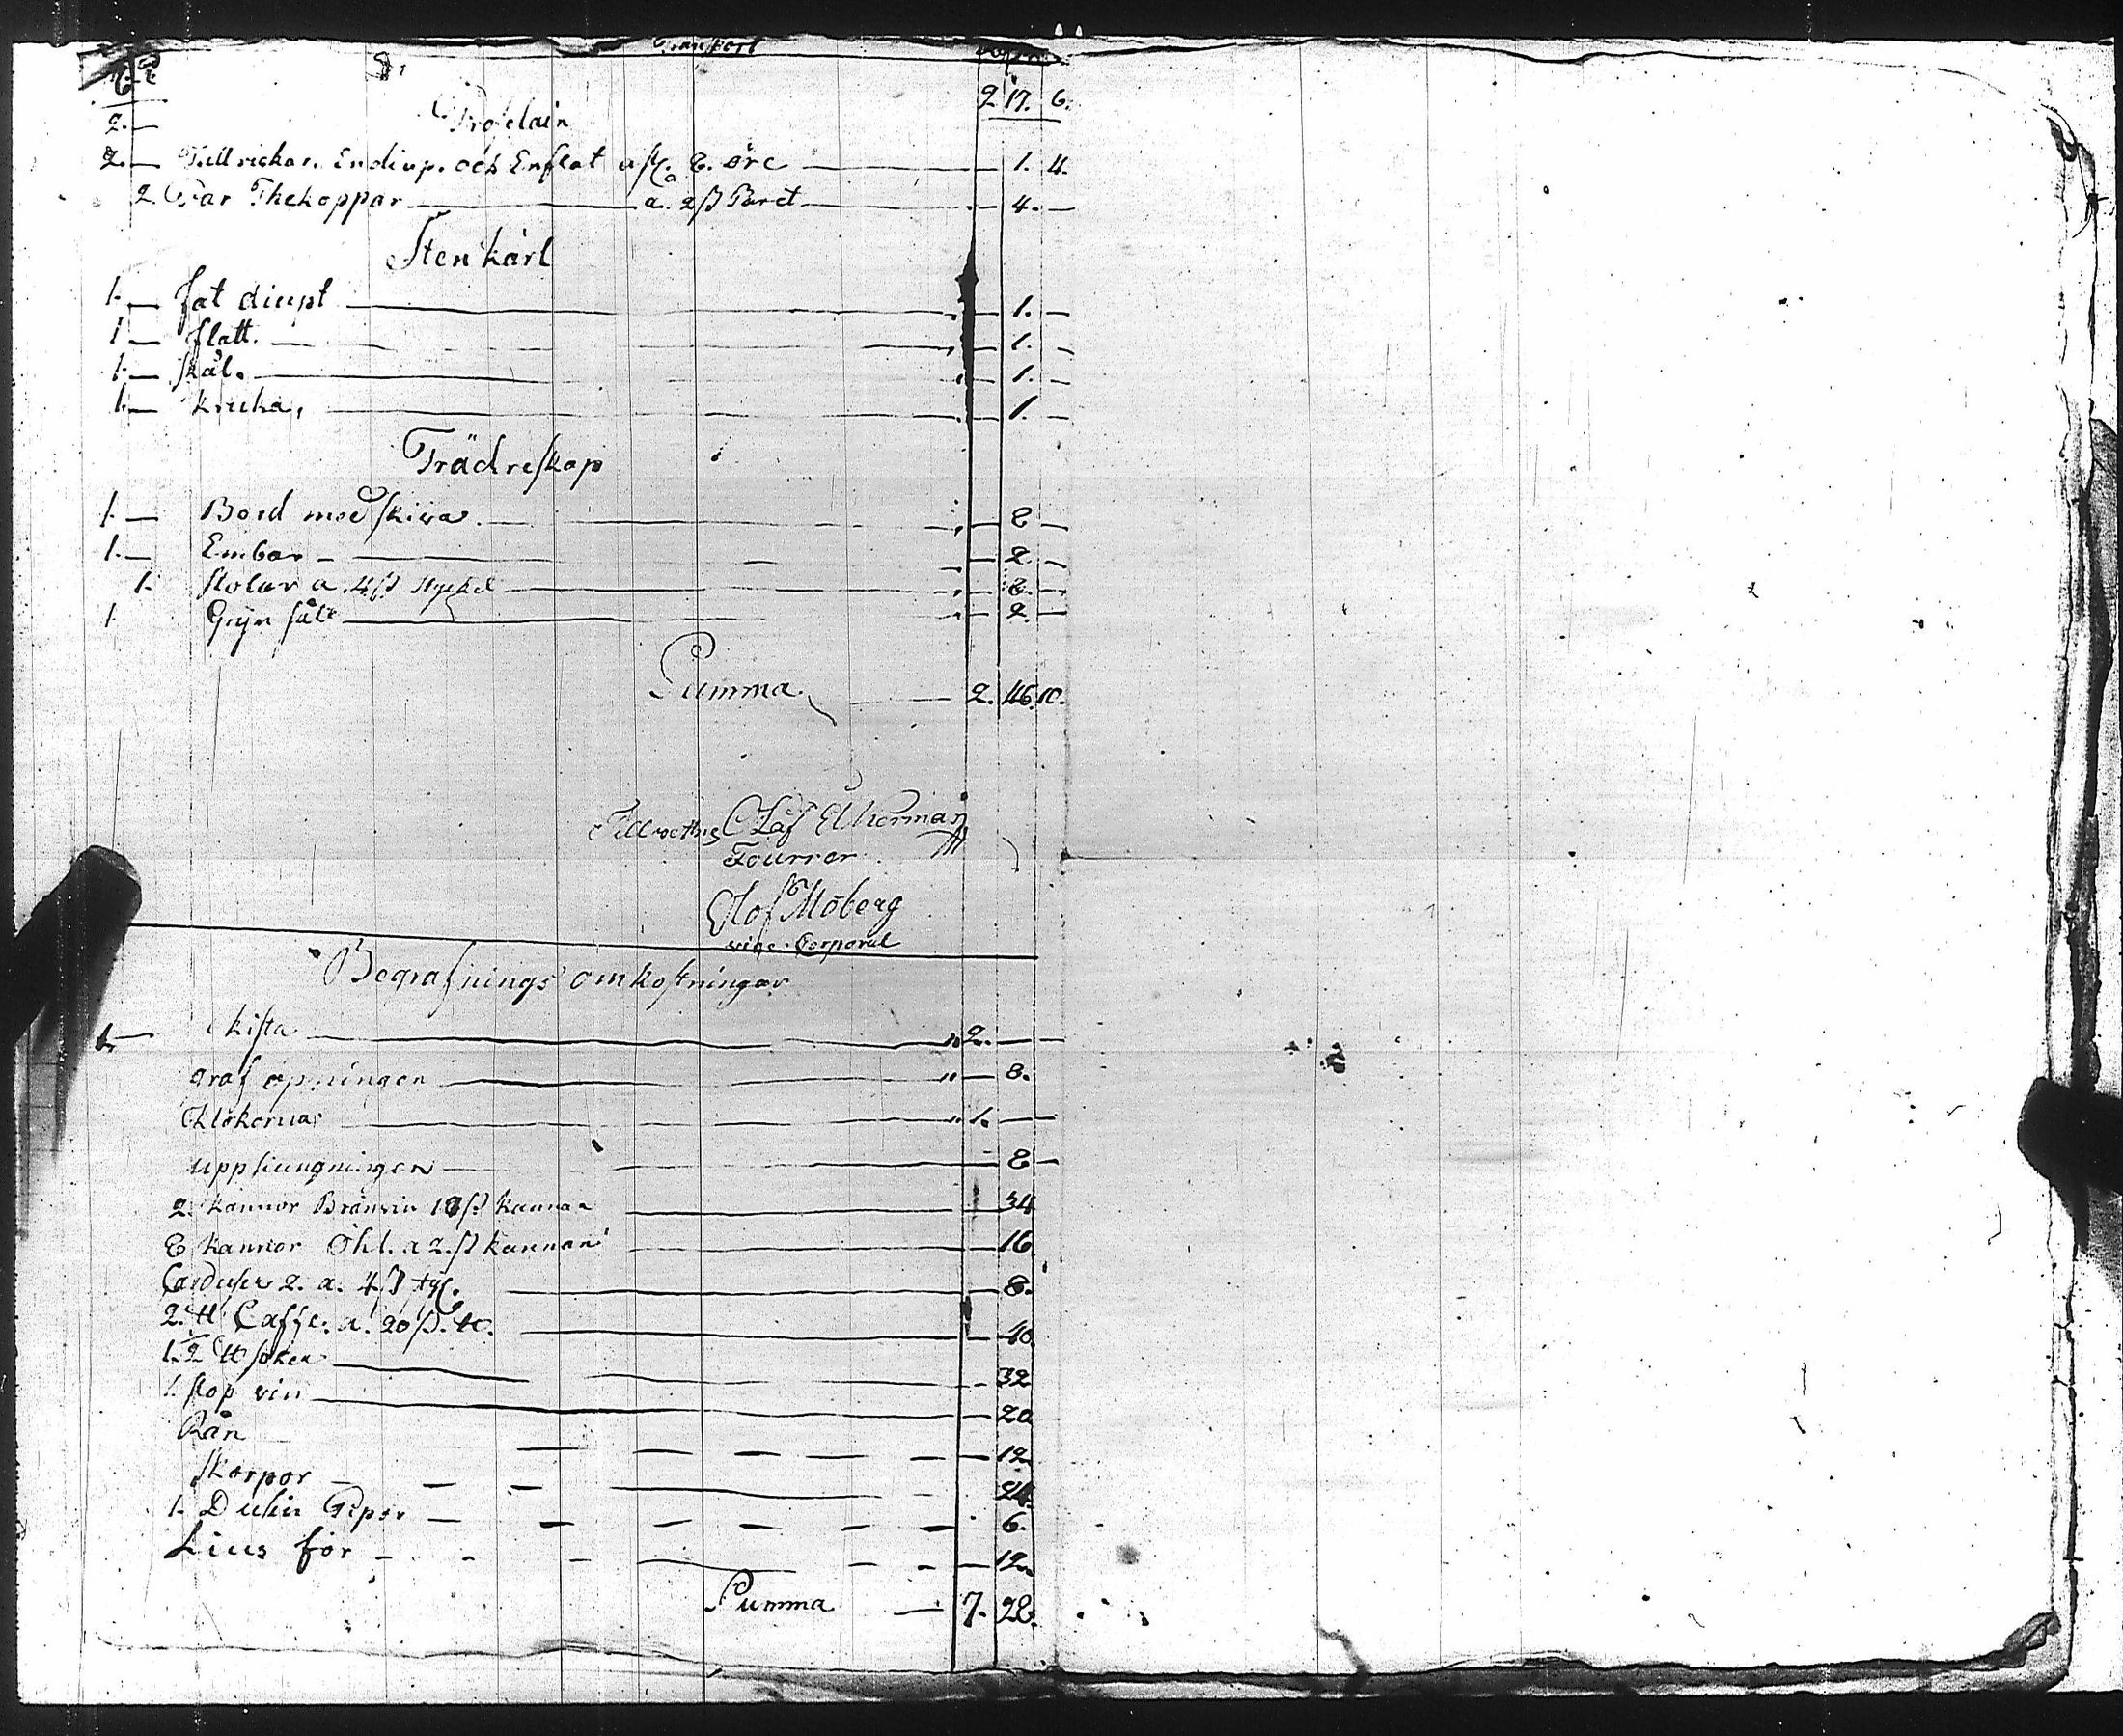 Transport
2 17. 6.
2.— Proselain
2.— Tallrickar. En diup. och En flat a st. 8. öre — 1. 4.
2. Par Thekoppar — a. 2 ß Paret — 4. —
Stenkärl
1.— fat diupt — 1. —
1— flatt. — 1. —
1.— skål. — 1. —
1.— kruka, — 1. —
Trädreskap
1.— Bord med skiva. — 8 —
1.— Embar — 2. —
1. stolar a. 4 ß stycket — 8. —
1. Gryn såll — 2. —
Summa — 2. 46. 10.
Olof
Fourrer
Olof Moberg
vice Corporal
Begrafnings omkostningar
1.— kista — 2. —
graf öpningen — 8.
Klokorna — 1. —
uppsiungningen — 8 —
2. kannor Bränvin 18 ß kannan — 34
8 kannor Öhl. a 2. ß kannan — 16
Carduser 2. a. 4 ß st. — 8.
2. ℔ Caffe. a. 20 ß. ℔. — 40.
1. 1/2 ℔ soker — 32
1. stop vin — 20
Rån — 12
Skorpor — 24.
1. Dusin Pipor — 6.
Lius för — 12.
Summa — 7. 28.